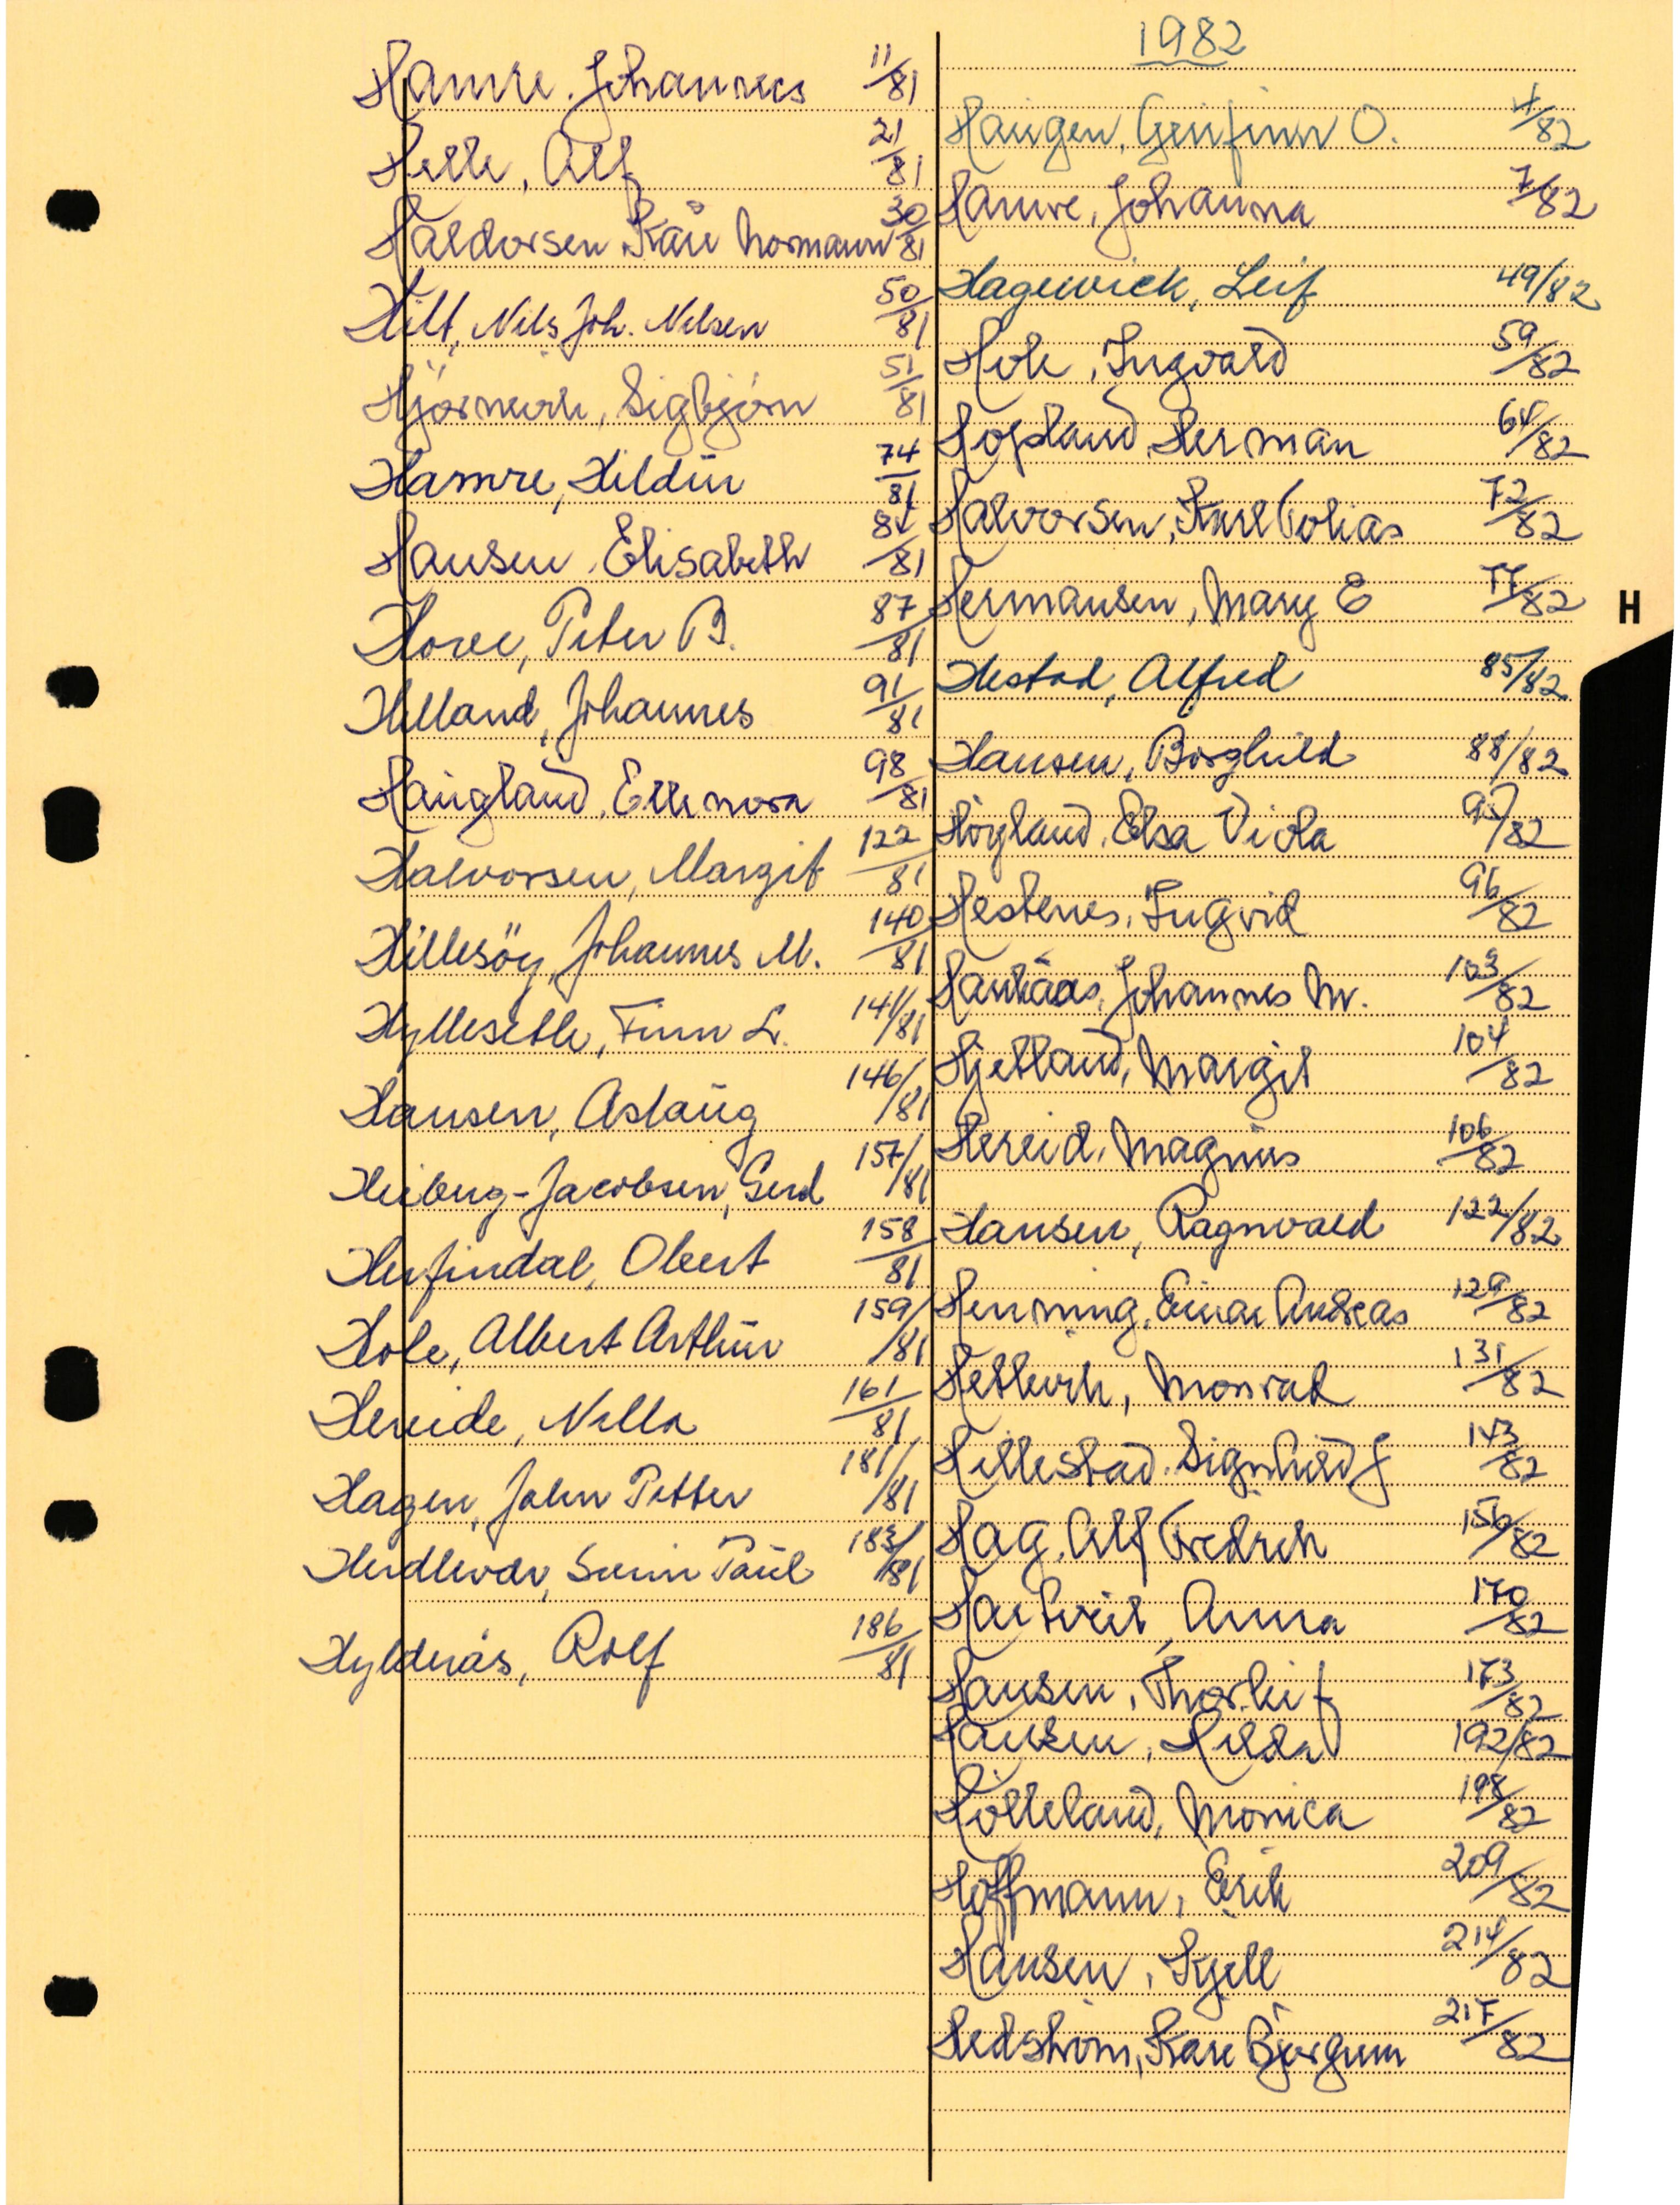 Hamre, Johannes 11/81
Helle, Alf 21/81
Haldorsen Kåre Normann 30/81
Hilt, Nils Joh. Nilsen 50/81
Hjørnevik, Sigbjørn 51/81
Hamre, Hildur 74/81
Hansen, Elisabeth 84/81
Hove, Peter B. 87/81
Helland, Johannes 91/81
Haugland, Ellenora 98/81
Halvorsen, Margit 122/81
Hillesøy, Johannes M. 140/81
Hylleseth, Finn L. 141/81
Hansen, Aslaug 146/81
Heiberg-Jacobsen, Gerd 157/81
Herfindal, Obert 158/81
Hole, Albert Arthur 159/81
Hereide, Nilla 161/81
Hagen, John Petter 181/81
Herdlevær, Paul 183/81
Hyldnås, Rolf 186/81
1982
Haugen, Gunfinn O. 4/82
Hamre, Johanna 7/82
Hagewick, Leif 49/82
Hole, Ingvald 59/82
Hopland Herman 64/82
Halvorsen, Karl Tobias 72/82
Hermansen, Mary E 77/82
Hestad, Alfred 85/82
Hansen, Borghild 88/82
Høyland, Elsa Viola /82
Hestenes, Ingvid 96/82
Haukaas, Johannes M. 103/82
Hjelland, Margit 104/82
Hereid, Magnus 106/82
Hansen, Ragnvald 122/82
Henning, Einar Andreas 129/82
Hetlevik, Monrad 131/82
Hillestad, Signhild J 143/82
Hag, Alf Fredrik 156/82
Hartveit, Anna 170/82
Hansen, Thorleif 173/82
Hansen, Hilda 192/82
Hølleland, Monica 198/82
Hoffmann, Erik 209/82
Hansen, Kjell 214/82
Hedstrøm, Kåre Bjørgum 217/82
H